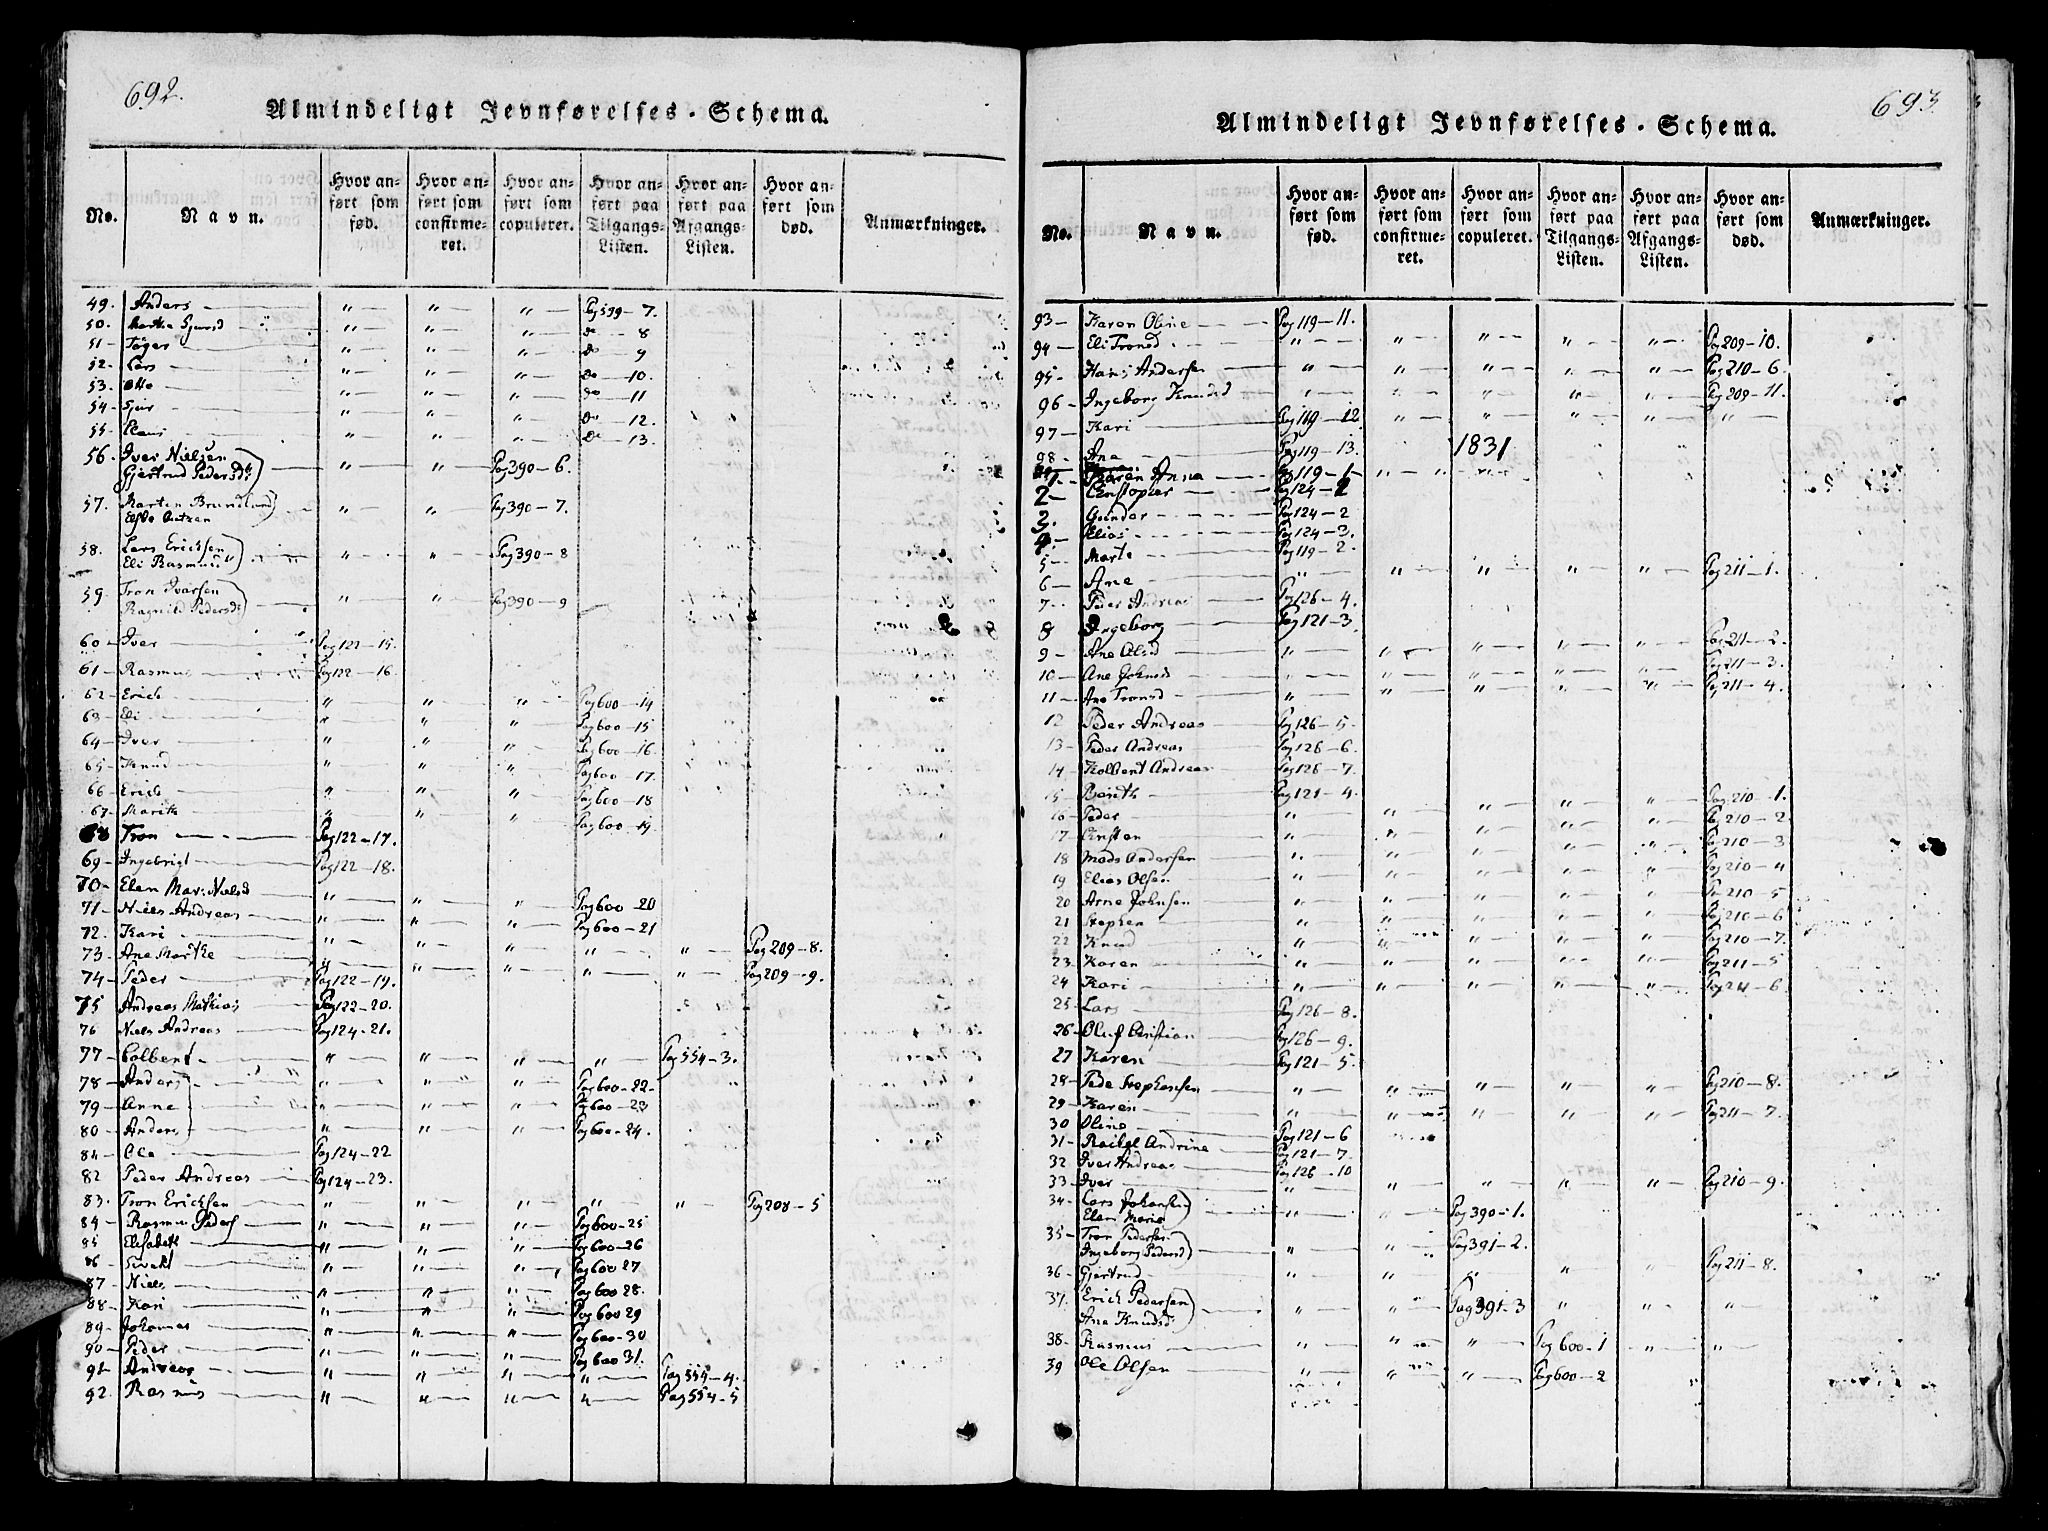 692.
Almindeligt Jevnførelses-Schema.
No.
Navn.
Hvor anført som fød.
Hvor anført som confirmeret.
Hvor anført som copuleret.
Hvor anført paa Tilgangs-Listen.
Hvor anført paa Afgangs-Listen.
Hvor anført som død.
Anmærkninger.
49. Anders " " " Pag 599-7.
50. " " " do 8
51 - Töger " " " do 9
52. Lars " " " do 10.
53. Otto " " " do 11
54 - Sjur " " " do 12.
55 " " " do 13.
56. Iver Nielsen
Gjertrud Pedersdt " " Pag 390-6.
57. Morten
" " Pag 390-7.
58. Lars Erichsen
Eli Rasmusdt " " Pag 390-8
59. Tron Ivarsen
Ragnild Pedersdt " " Pag 390-9
60 - Iver Pag 122-15.
61 - Rasmus Pag 122-16.
62 - Erich " " " Pag 600-14
63 - Eli " " " Pag 600-15
64 - Iver " " " Pag 600-16.
65 - Knud " " " Pag 600-17.
66 - Erich " " " Pag 600-18
67 - Marith " " " Pag 600-19.
68 Tron Pag 122-17.
69 - Ingebrigt Pag 122-18.
70 - Elen Mari Nielsd " " " Pag 600-20
71 - Niels Andreas " " " Pag 600-21
72. Kari " " " " " Pag 209-8.
73 - Ane Marthe " " " " " Pag 209-9.
74 - Peder Pag 122-19.
75 Andreas Mathias Pag 122-20.
76 Niels Andreas Pag 124-21.
77 - Colbent " " " " Pag 554-3.
78 - Anders " " " Pag 600-22-
79 - Anne " " " Pag 600-23
80 - Anders " " " Pag 600-24.
81 - Ole Pag 124-22
82 Peder Andreas Pag 124-23.
83. Tron Erichsen " " " " " Pag 208-5
84 - Rasmus Peders " " " Pag 600-25
85 Elisabeth " " " Pag 600-26
86 " " " Pag 600 27
87 - Niels " " " Pag 600 28.
88 - Kari " " " Pag 600 29
89 - Johannes " " " Pag 600-30
90 - Peder " " " Pag 600 31.
91 Andreas " " " " Pag 554-4.
92. Rasmus " " " " Pag 554-5
693
Almindeligt Jevnførelses-Schema.
No.
Navn.
Hvor anført som fød.
Hvor anført som confirmeret.
Hvor anført som copuleret.
Hvor anført paa Tilgangs-Listen.
Hvor anført paa Afgangs-Listen.
Hvor anført som død.
Anmærkninger.
93 - Karen Oline Pag 119-11.
94 - Eli Tronsd " " " " " Pag 209-10.
95 - Hans Andersen " " " " " Pag 210-6.
96 - Ingeborg Knudsd " " " " " Pag 209-11.
97 - Kari Pag 119-12 " " " " "
98 - Ane Pag 119-13.
1831
1 - Karen Anna Pag 119-1-
2 - Christopher Pag 124-
3. Gunder Pag 124-2
4 - Elias Pag 124-3.
5 - Marte Pag 119-2.
6 - Ane " " " " " Pag 211-1.
7 - Peder Andreas Pag 126-4.
8 Ingeborg Pag 121-3
9 - Ane Olsd " " " " " Pag 211-2.
10 - Ane Johnsd " " " " " Pag 211-3.
11 - Ane Tronsd " " " " " Pag 211-4.
12 Peder Andreas Pag 126-5.
13 - Peder Andreas Pag 126-6.
14 - Kolbent Andreas Pag 126-7.
15 - Berith Pag 121-4.
16 - Peder " " " " " Pag 210-1.
17 - Christen " " " " " Pag 210-2
18 Mads Andersen " " " " " Pag 210-3
19 Elias Olsen " " " " " Pag 210-4
20 Arne Johnsen " " " " " Pag 210-5
21 Stephen " " " " " Pag 210-6
22 Knud " " " " " Pag 210-7.
23 - Karen " " " " " Pag 211-5
24 Kari " " " " " Pag 211-6.
25 - Lars Pag 126-8.
26 - Oluf Christian Pag 126-9.
27 Karen Pag 121-5.
28 - Peder Stephensen " " " " " Pag 210-8.
29 - Karen " " " " " Pag 211-7.
30 Oline Pag 121-6
31 - Rachel Andrine Pag 121-7.
32 Iver Andreas Pag 126-10
33 - Iver " " " " " Pag 210-9.
34 - Lars Johansen
Elen Marie " " Pag 390-1.
35 - Tron Pedersen
Ingeborg Pedersd " " Pag 391-2.
36 - Gjertrud " " " " " Pag 211-8.
37. Erich Pedersen
Ane Knudsd. " " Pag 391-3 " " "
38 - Rasmus " " " Pag 600-1 " "
39 Ole Olsen " " " Pag 600-2